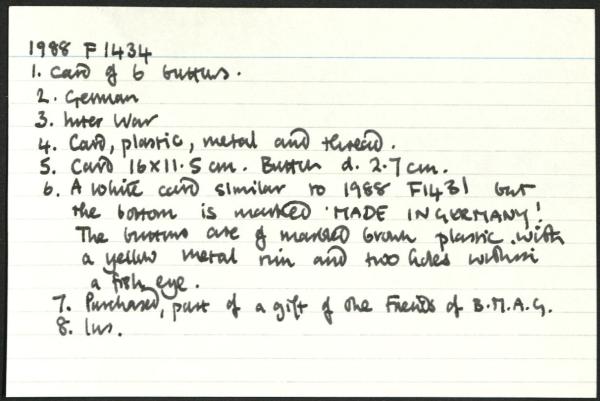 1988 F 1434
1. Card of 6 buttons.
2. German
3. Inter War
4. Card, plastic, metal and thread.
5. Card 16x11.5 cm. Button d. 2.7 cm.
6. A white card similar to 1988 F1431 but
the bottom is marked 'MADE IN GERMANY'.
The buttons are of marbled brown plastic with
a yellow metal rim and two holes within
a fish eye.
7. Purchased, part of a gift of the Friends of B.M.A.G.
8.